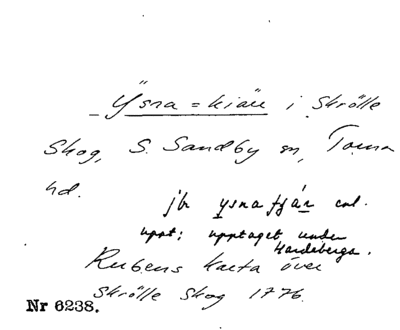 Ÿsna = kiäu i Skrölle
Skog, S. Sandby sn, Torna
hd.
jbr ysnatjär enl.
uppt; upptaget under
Hardeberga.
Rubens karta över
Skrölle Skog 1776.
Nr 6238.